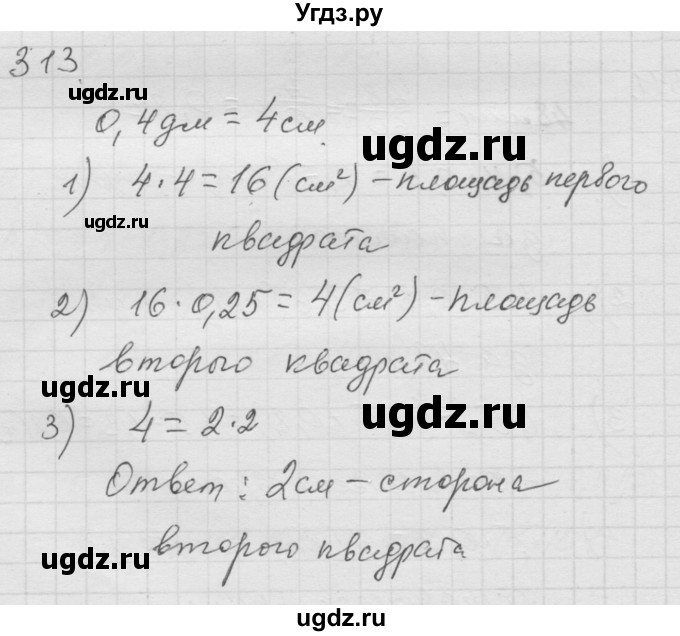 Угдз.ру
313.
ugdz.ru
0,4дм = 4см.
ugdz.ru
1) 4·4=16(см²) – площадь первого
квадрата
2) 16·0,25=4(см²) – площадь
второго квадрата
ugdz.ru
ugdz.ru
3) 4=2·2
Ответ: 2см – сторона
второго квадрата
ugdz.ru
ugdz.ru